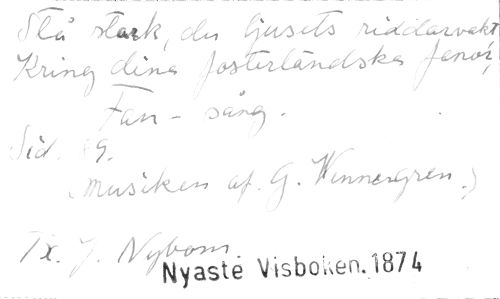 Stå stark, du ljusets riddarvakt
Kring dina fosterländska fanor,
Fan-sång.
Sid. 89.
(Musiken af. G. Wennergren.)
Tx. J. Nybom.
Nyaste Visboken. 1874